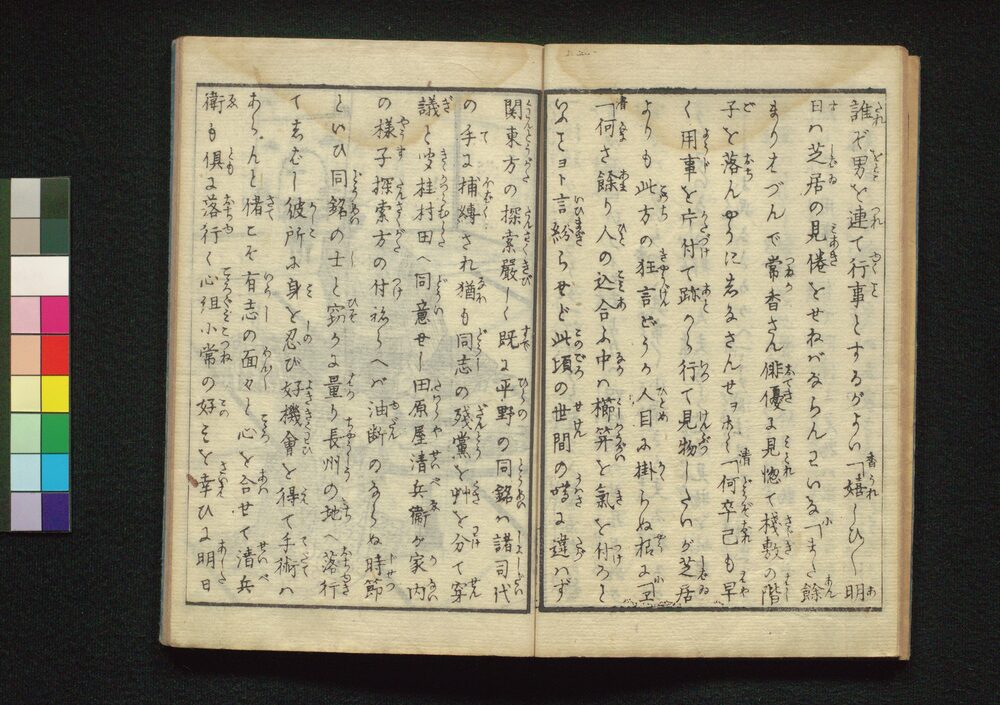 誰ぞ男を連て行事とするがよい「嬉しひ〳〵明
日ハ芝居の見倦をせねがならんわいな「また餘
まりはづんで常香さん俳優に見惚て棧敷の階
子を落んやうにしなさんせヲホヽ「何卒己も早
く用事を片付て跡から行て見物したいが芝居
よりも此方の狂言どうか人目に掛らぬ様に「ヱ
「何さ餘り人の込合ふ中ハ櫛笄を氣を付ろと
いふことヨト言紛らせど此頃の世間の噂に違ハず
関東方の探索嚴しく既に平野の同銘ハ諸司代
の手に捕縛され猶も同志の殘黨を艸を分て穿
議と聞桂村田へ同意せし田原屋清兵衞が家内
の様子探索方の付 ハ油断のならぬ時節
といひ同銘の士と窃かに量り長州の地へ落行
て志むし彼所に身を忍び好機會を得て手術ハ
あらんと偖こそ有志の面々と心を合せて清兵
衛も倶に落行く心組小常の好みを幸ひに明日